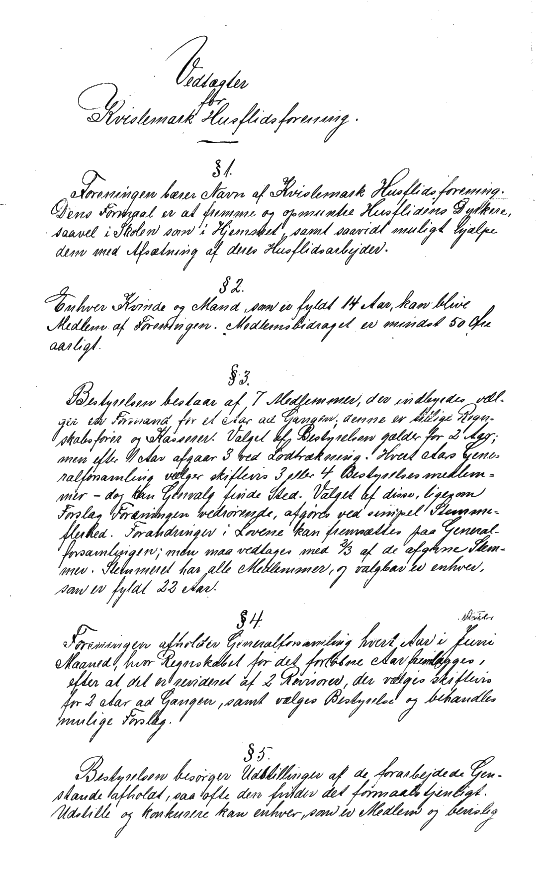 Vedtægter
for
Kvislemark Husflidsforening.
§ 1.
Foreningen bærer Navn af Kvislemark Husflidsforening.
Dens Formaal er at fremme og opmuntre Husflidens Dyrkere,
saavel i Skolen som i Hjemmet, samt saavidt muligt hjælpe
dem med Afsætning af deres Husflidsarbejder.
§ 2.
Enhver Kvinde og Mand, som er fyldt 14 Aar, kan blive
Medlem af Foreningen. Medlemsbidraget er mindst 50 Øre
aarligt.
§ 3.
Bestyrelsen bestaar af 7 Medlemmer, der indbyrdes væl-
ger en Formand for et Aar ad Gangen, denne er tillige Regn-
skabsfører og Kasserer. Valget af Bestyrelsen gælder for 2 Aar;
men efter 1 Aar afgaar 3 ved Lodtrækning. Hvert Aars Gene-
ralforsamling vælger skiftevis 3 eller 4 Bestyrelsesmedlem-
mer – dog kan Genvalg finde Sted. Valget af disse, ligesom
Forslag Foreningen vedrørende, afgøres ved simpel Stemme-
flerhed. Forandringer i Lovene kan fremsættes paa General-
forsamlingen; men maa vedtages med 2/3 af de afgivne Stem-
mer. Stemmeret har alle Medlemmer, og valgbar er enhver,
som er fyldt 22 Aar.
§ 4
Foreningen afholder Generalforsamling hvert Aar i Juni
Maaned, hvor Regnskabet for det forløbne Aar fremlægges,
efter at det er revideret af 2 Revisorer, der vælges skiftevis
for 2 Aar ad Gangen, samt vælges Bestyrelse og behandles
mulige Forslag.
§ 5.
Bestyrelsen besørger Udstillinger af de forarbejdede Gen-
stande afholdt, saa ofte den finder det formaalstjenligt.
Udstille og konkurrere kan enhver, som er Medlem og bevislig